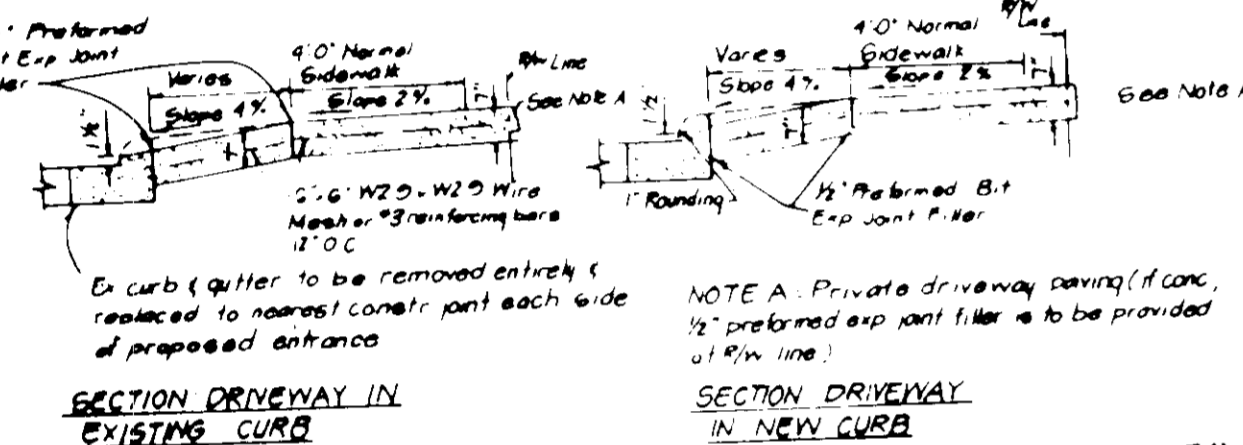 Preformed
Exp Joint
4'0" Normal
Sidewalk
Varies
Slope 4%
Slope 2%
R/W Line
See Note A
6"x6" W2.9 x W2.9 Wire
Mesh or #3 reinforcing bars
12" O C
Ex curb & gutter to be removed entirely &
replaced to nearest constr joint each side
of proposed entrance
SECTION DRIVEWAY IN
EXISTING CURB
4'0" Normal
Sidewalk
R/W
Line
Varies
Slope 4%
Slope 2%
See Note A
1" Rounding
1/2" Preformed Bit
Exp Joint Filler
NOTE A: Private driveway paving (if conc,
1/2" preformed exp joint filler is to be provided
at R/W line)
SECTION DRIVEWAY
IN NEW CURB